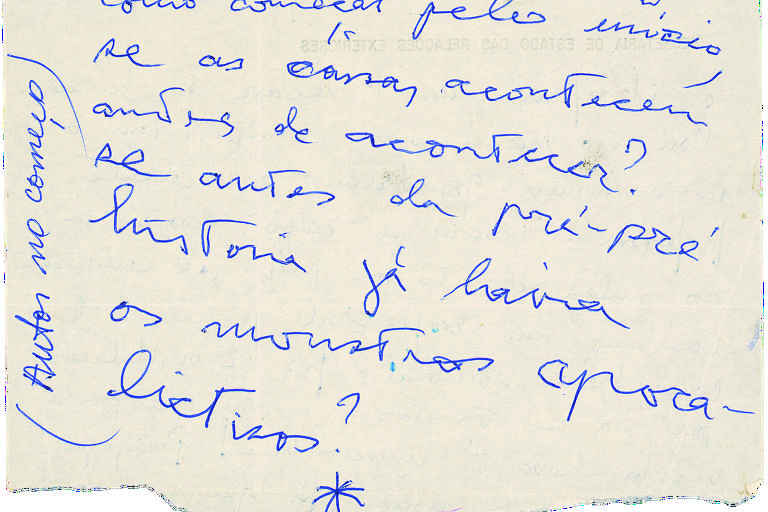 como começar pelo início,
se as coisas acontecem
antes de acontecer?
se antes da pré-pré
história já havia
os monstros apoca-
lictisos?
*
(Autor no começo)
SECRETARIA DE ESTADO DAS RELAÇÕES EXTERIORES